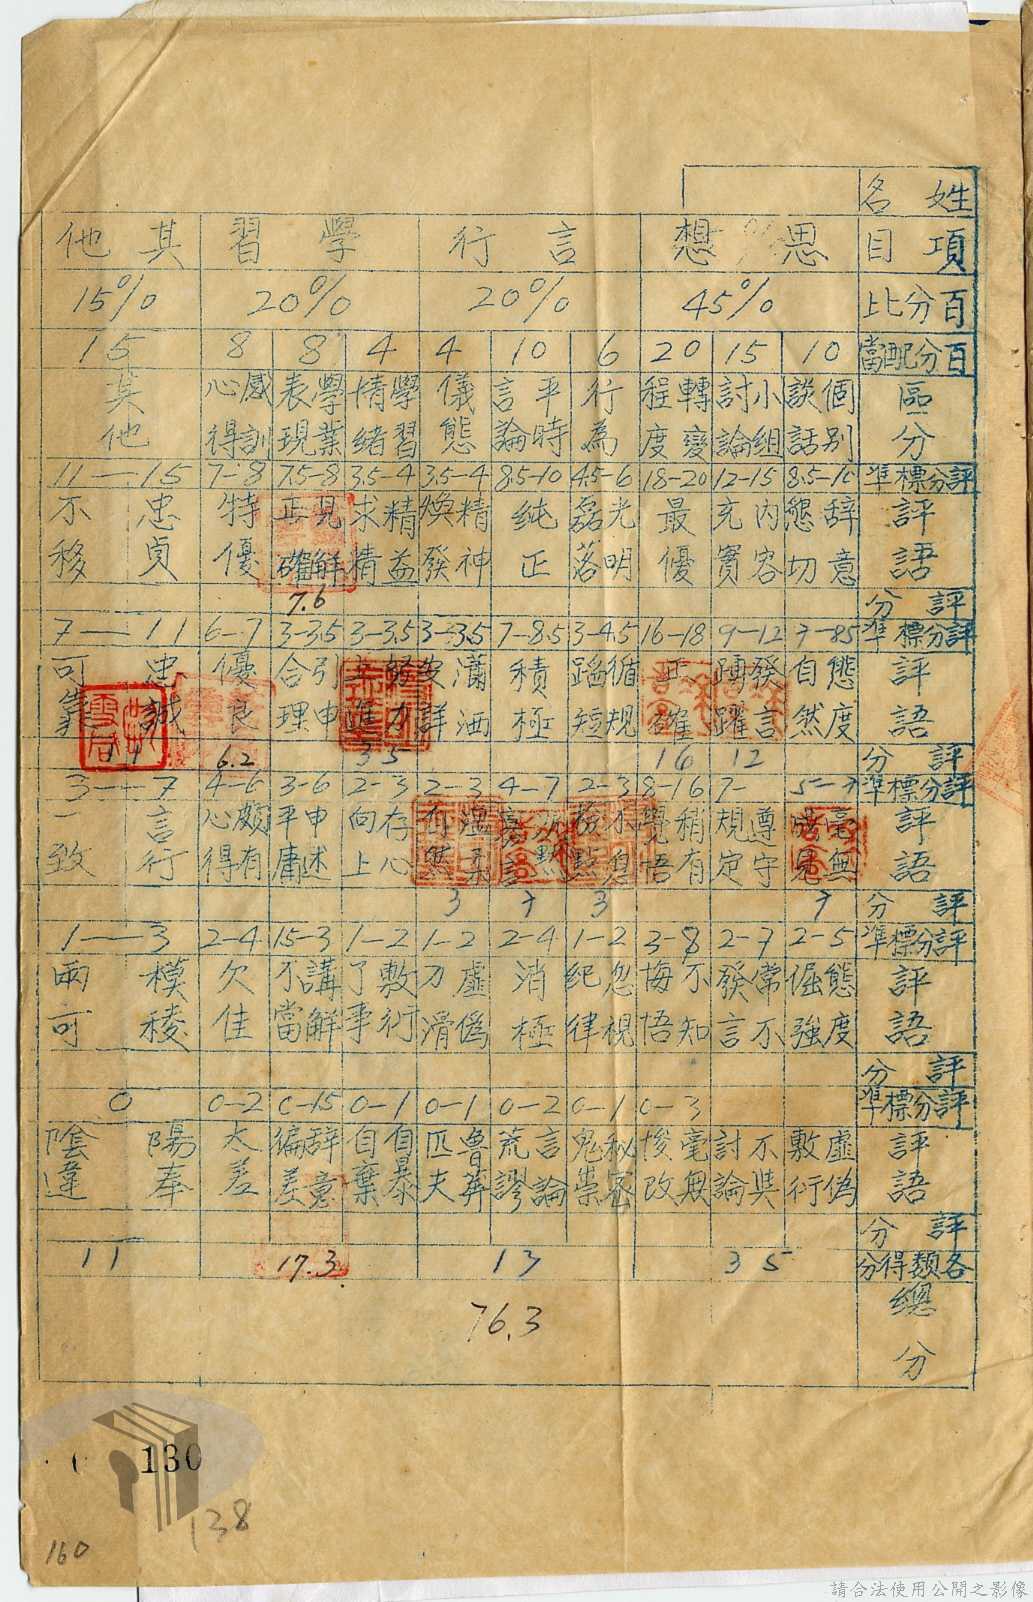 姓名
項目 思想 言行 學習 其他
百分比 45% 20% 20% 15%
百分配當 10 15 20 6 10 4 4 8 8 15
區分 個別談話 小組討論 轉變程度 行為 平時言論 儀態 學習情緒 學業表現 感訓心得 其他
評分標準 8.5-10 12-15 18-20 4.5-6 8.5-10 3.5-4 3.5-4 7.5-8 7-8 11—15
評語 辞意懇切 內容充實 最優 光明磊落 純正 精神煥發 精益求精 見解正確 特優 忠貞不移
評分 7.6
評分標準 7-8.5 9-12 16-18 3-4.5 7-8.5 3-3.5 3-3.5 3-3.5 6-7 7—11
評語 態度自然 發言踴躍 正確 循規蹈短 積極 瀟洒安詳 努力 引申合理 優良 忠誠可靠
評分 12 16 3.5 6.2 11
評分標準 5-7 7- 8-16 2-3 4-7 2-3 2-3 3-6 4-6 3—7
評語 毫無 遵守規定 稍有覺悟 不 溫柔 存心向上 申述平庸 頗有心得 言行一致
評分 7 3 7 3
評分標準 2-5 2-7 3-8 1-2 2-4 1-2 1-2 15-3 2-4 1—3
評語 態度倔強 常不發言 不知悔悟 忽視紀律 消極 虛偽刁滑 敷衍了事 講解不當 欠佳 模稜兩可
評分
評分標準 0-3 0-1 0-2 0-1 0-1 0-15 0-2 0
評語 虛偽敷衍 不與討論 毫無悛改 秘密鬼祟 言論荒謬 魯莽匹夫 自暴自棄 辞意編差 太差 陽奉陰違
評分
各類得分 35 13 17.3 11
總分 76.3
130
138
160
請合法使用公開之影像